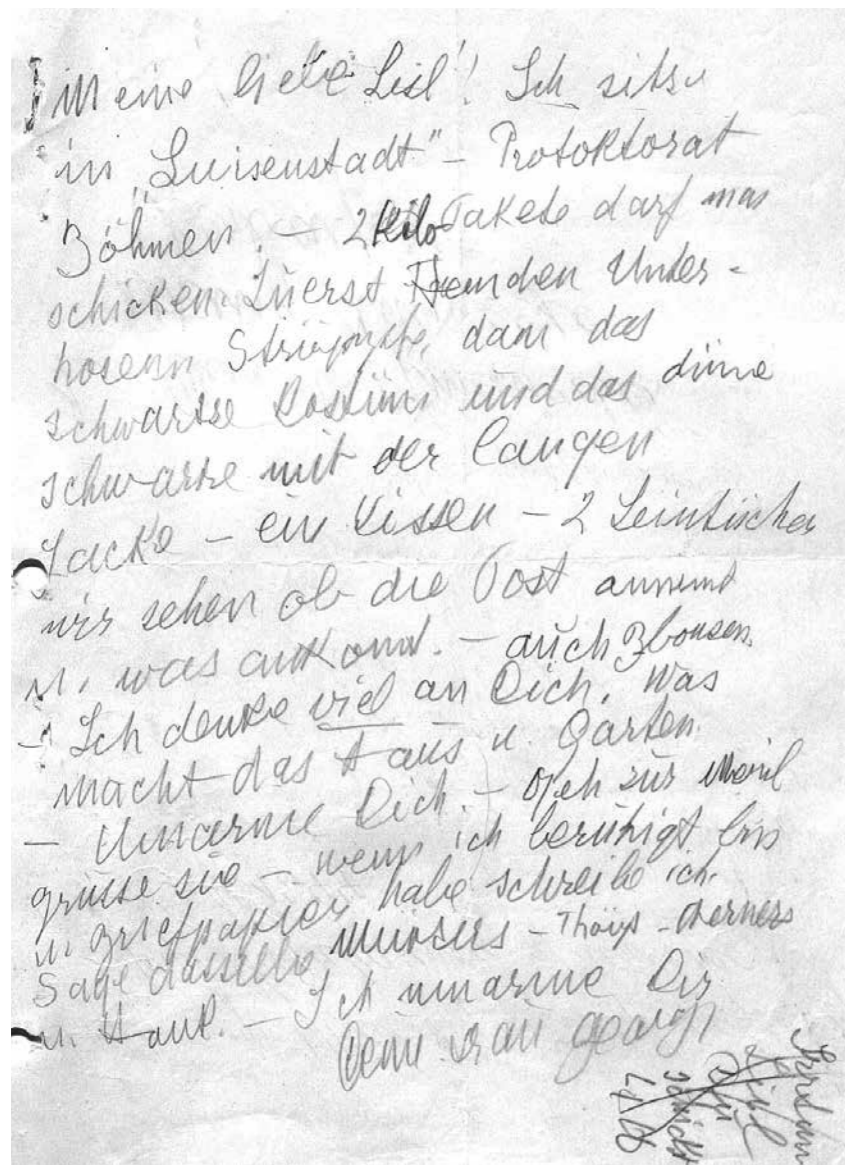 Meine liebe Lisl! Ich sitze
in "Luisenstadt" – Protoktorat
Böhmen. – 2 Kilo Pakete darf man
schicken. Zuerst Hemden Unter-
hosenn Strümpfe, dan das
schwartze Kostüm und das düne
schwarze mit der langen
Jacke – ein Kissen – 2 Leintücher
wir sehen ob die Post annimt
u. was ankomt. – auch
– Ich denke viel an Dich, was
macht das Haus u. Garten.
– Umarme Dich. – Geh zur
grüsse sie – wenn ich beruhigt bin
u. Briefpapier habe schreibe ich.
Sage dasselbe –
u. – Ich umarme Dir
Dein